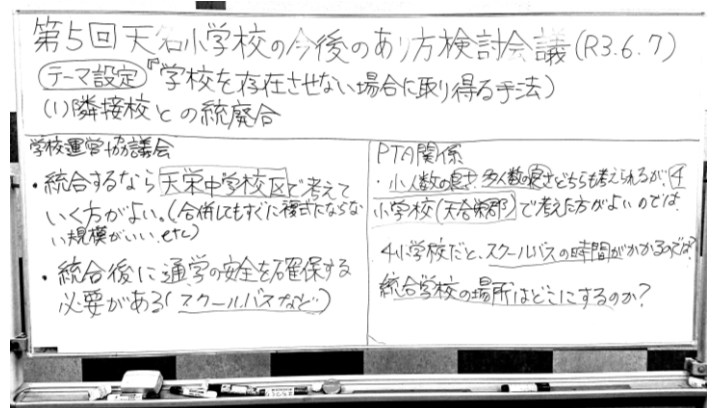 第5回天名小学校の今後のあり方検討会議(R3.6.7)
テーマ設定『学校を存在させない場合に取り得る手法)
(1)隣接校との統廃合
学校運営協議会
・統合するなら天栄中学校区で考えて
いく方がよい。(合併してもすぐに複式にならな
い規模がいい.etc)
・統合後に通学の安全を確保する
必要がある(スクールバスなど)
PTA関係
・小人数の良さ、多人数の良さどちらも考えられるが、4
小学校(天合栄郡)で考えた方がよいのでは
4小学校だと、スクールバスの時間がかかるのでは?
統合学校の場所はどこにするのか?